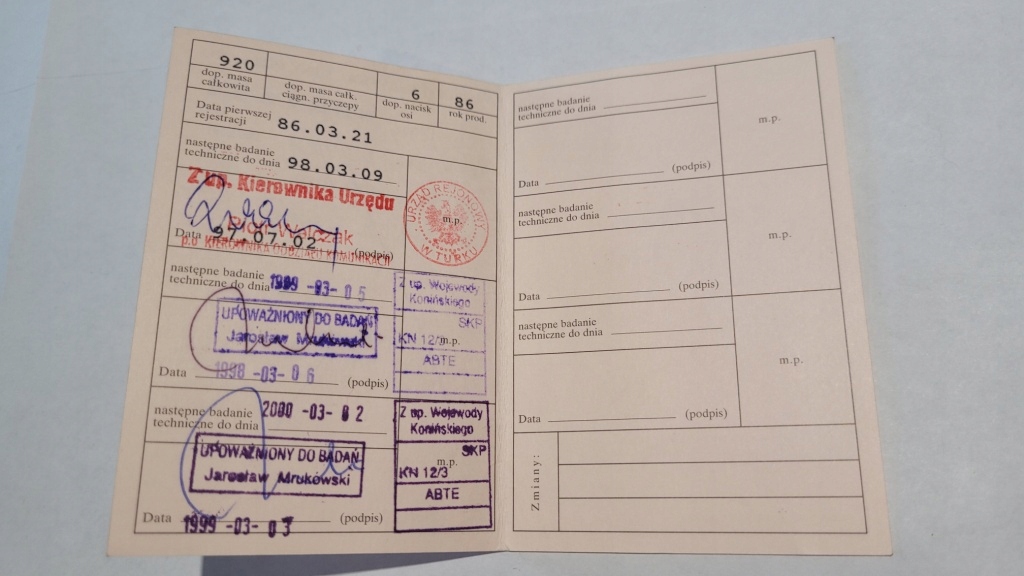 920
dop. masa
całkowita
dop. masa całk.
ciągn. przyczepy
6
dop. nacisk
osi
86
rok prod.
Data pierwszej
rejestracji 86.03.21
następne badanie
techniczne do dnia 98.03.09
Z up. Kierownika Urzędu
Piotr Walczak
Data 97.07.02 (podpis)
p.o. KIEROWNIKA ODDZIAŁU KOMUNIKACJI
URZĄD REJONOWY
m.p.
W TURKU
następne badanie
techniczne do dnia 1999 -03- 05
UPOWAŻNIONY DO BADAŃ
Jarosław Mrukowski
Data 1998 -03- 06 (podpis)
Z up. Wojewody
Konińskiego
SKP
KN 12/3 m.p.
ABTE
następne badanie
techniczne do dnia 2000 -03- 02
UPOWAŻNIONY DO BADAŃ
Jarosław Mrukowski
Data 1999 -03- 03 (podpis)
Z up. Wojewody
Konińskiego
SKP
m.p.
KN 12/3
ABTE
następne badanie
techniczne do dnia
m.p.
Data (podpis)
następne badanie
techniczne do dnia
m.p.
Data (podpis)
następne badanie
techniczne do dnia
m.p.
Data (podpis)
Zmiany: